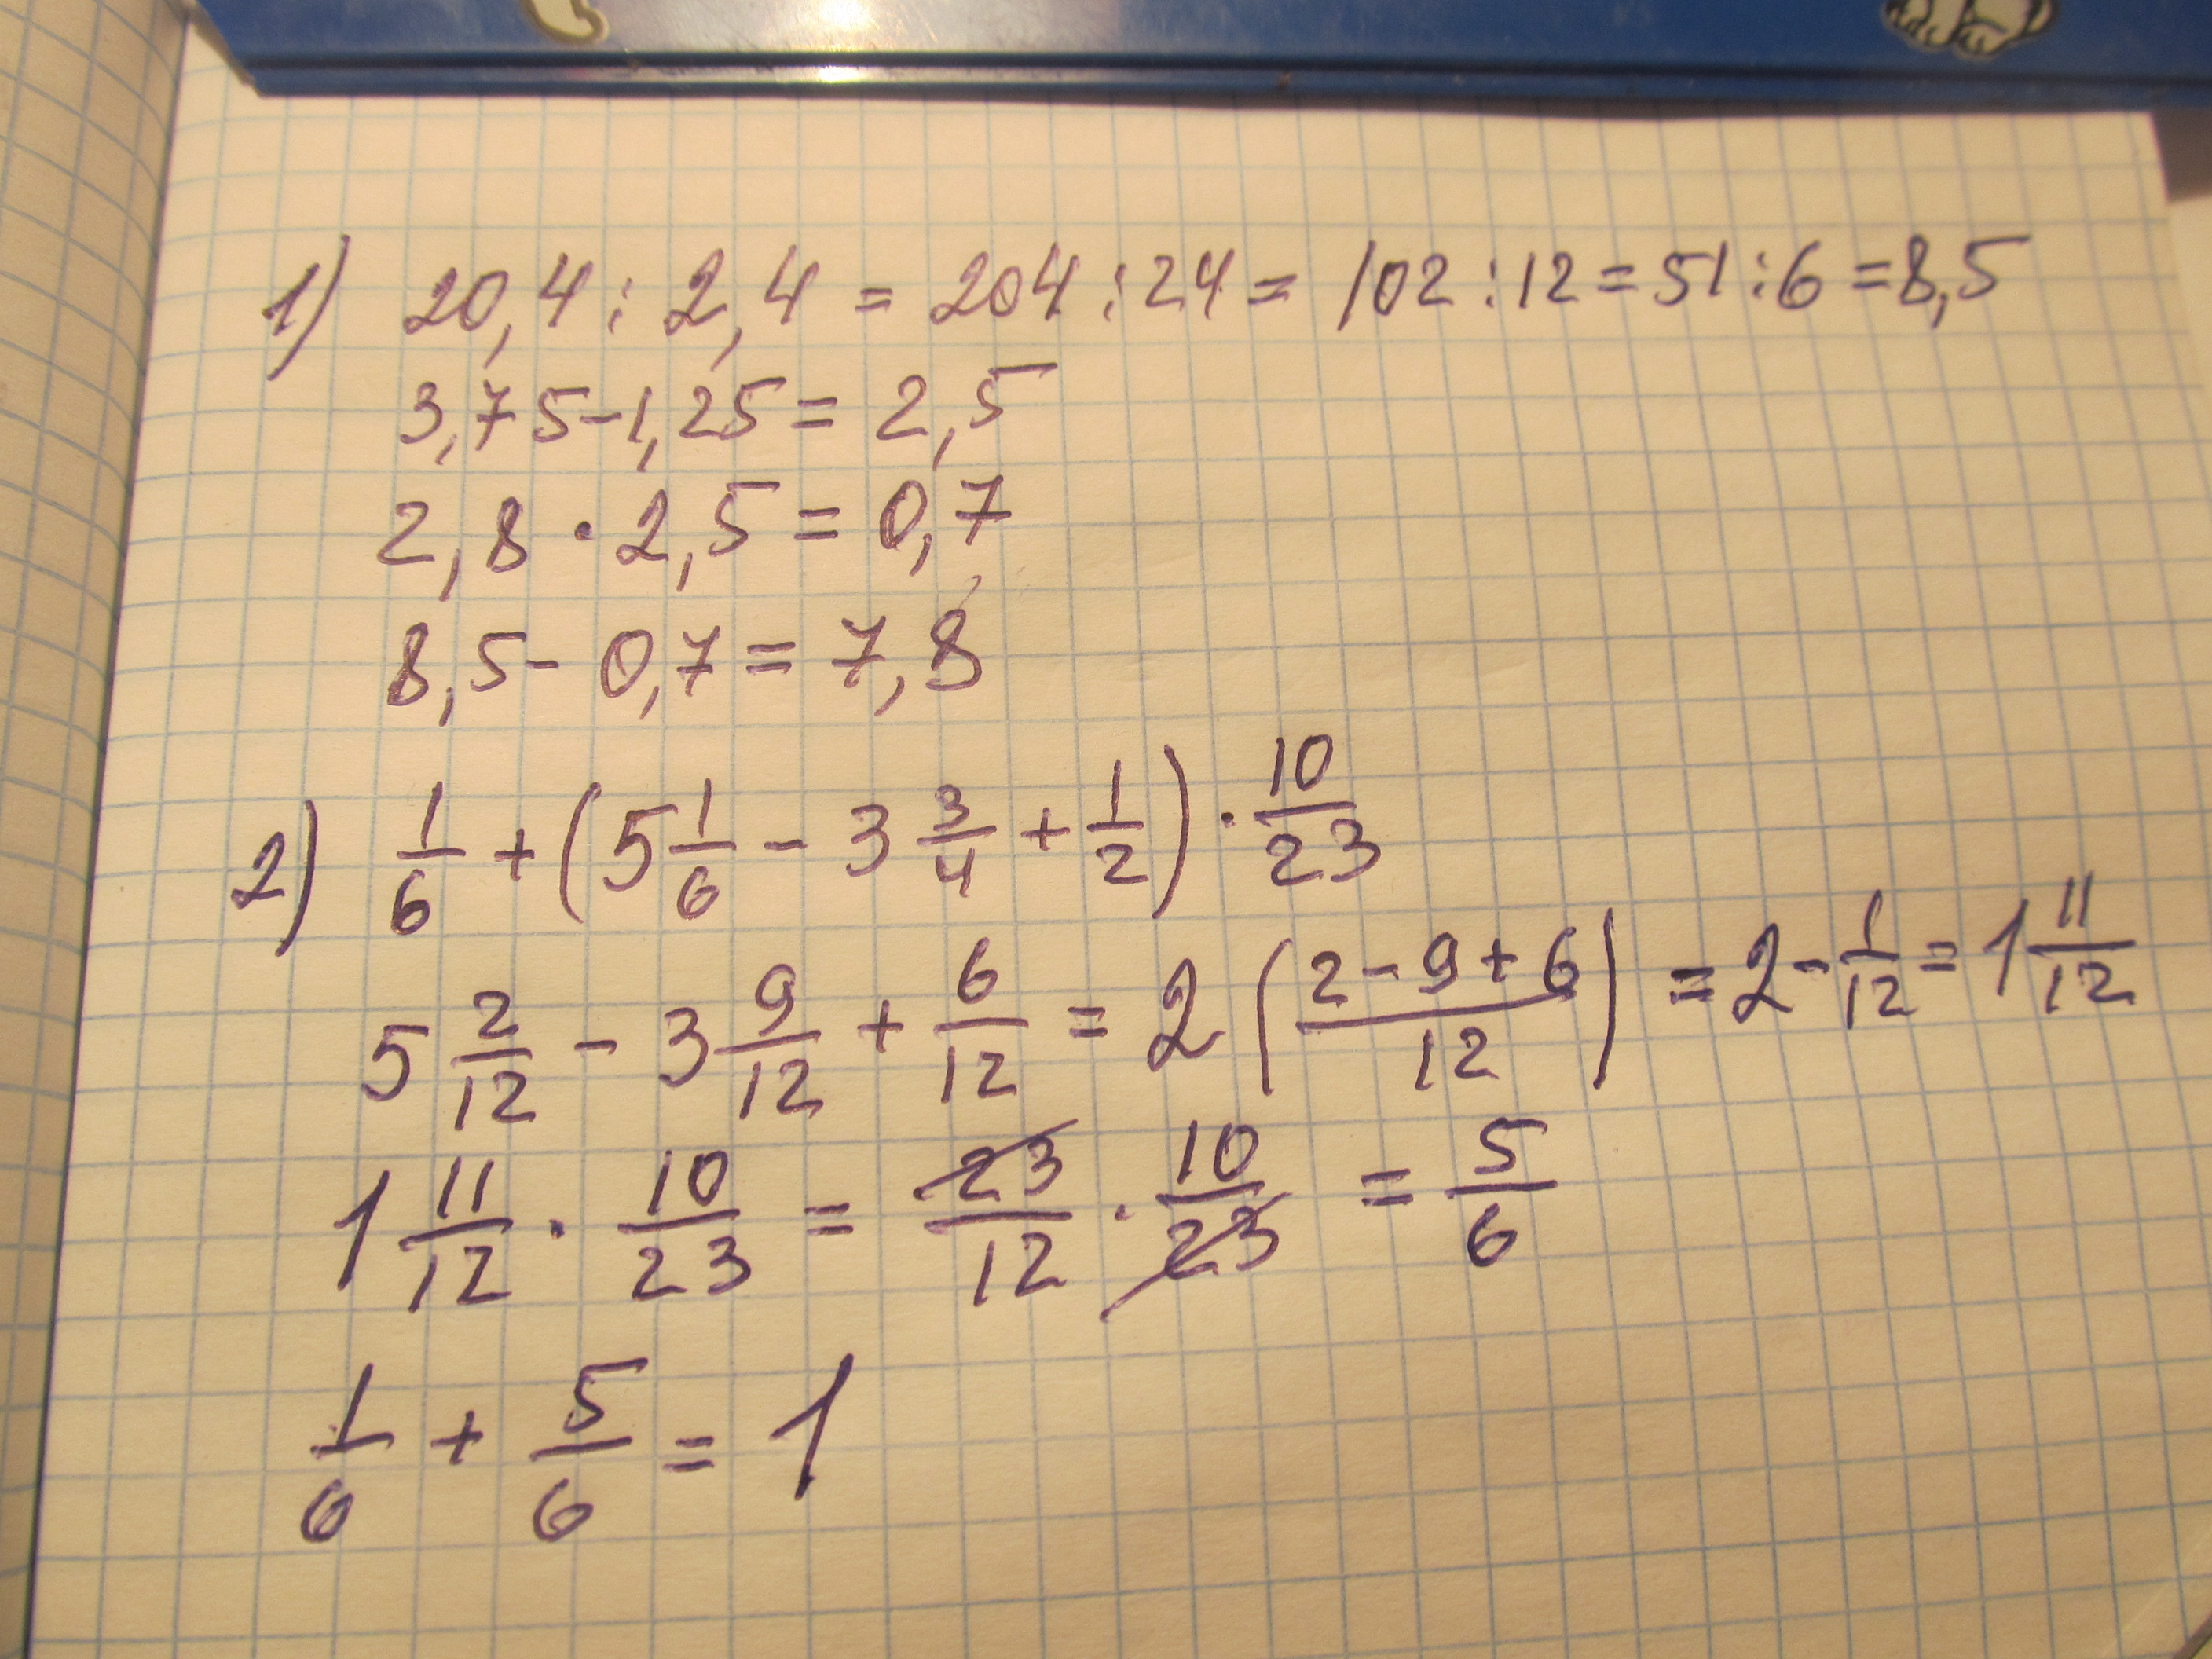 1) 20,4 : 2,4 = 204 : 24 = 102 : 12 = 51 : 6 = 8,5
3,75 - 1,25 = 2,5
2,8 · 2,5 = 0,7
8,5 - 0,7 = 7,8
2) 1/6 + (5 1/6 - 3 3/4 + 1/2) · 10/23
5 2/12 - 3 9/12 + 6/12 = 2 ((2 - 9 + 6)/12) = 2 - 1/12 = 1 11/12
1 11/12 · 10/23 = 23/12 · 10/23 = 5/6
1/6 + 5/6 = 1